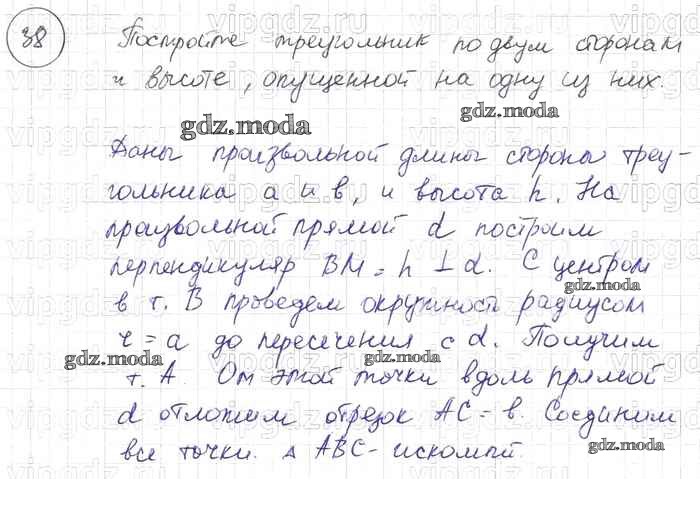 38 Постройте треугольник по двум сторонам
и высоте, опущенной на одну из них.
gdz.moda
gdz.moda
Даны произвольной длины стороны треу-
гольника a и b, и высота h. На
произвольной прямой d построим
перпендикуляр BM = h ⊥ d. С центром
gdz.moda
в т. В проведем окружность радиусом
r = a до пересечения с d. Получим
gdz.moda
gdz.moda
т. А. От этой точки вдоль прямой
d отложим отрезок AC = b. Соединим
все точки. △ ABC - искомый.
gdz.moda